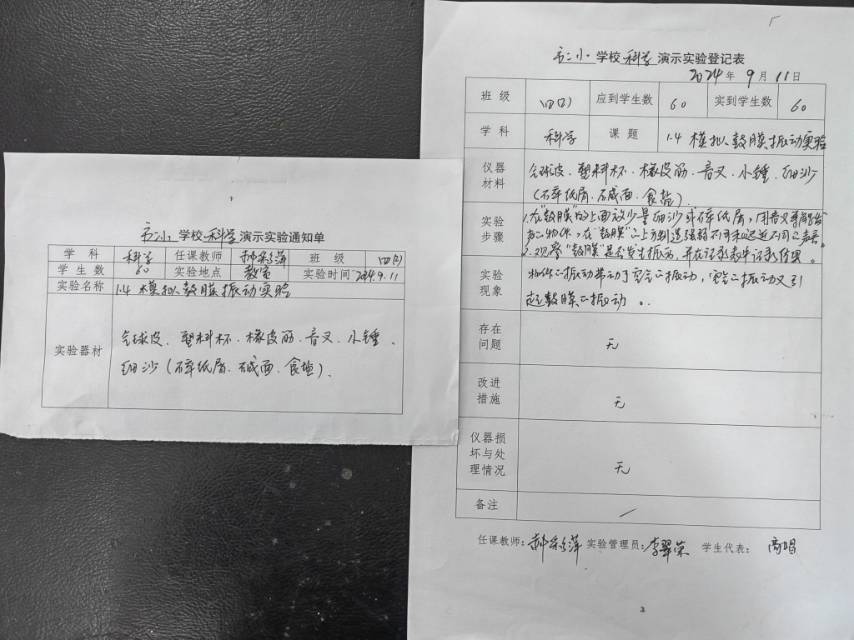 市二小学校科学演示实验通知单
学科 科学 任课教师 郝彩萍 班级 四(2)
学生数 60 实验地点 教室 实验时间 2024.9.11
实验名称 1.4 模拟鼓膜振动实验
实验器材
气球皮、塑料杯、橡皮筋、音叉、小锤、
细沙(碎纸屑、碱面、食盐)。
市二小学校科学演示实验登记表
2024年9月11日
班级 四(2) 应到学生数 60 实到学生数 60
学科 科学 课题 1.4 模拟鼓膜振动实验
仪器材料
气球皮、塑料杯、橡皮筋、音叉、小锤、细沙
(碎纸屑、碱面、食盐)
实验步骤
1.在"鼓膜"的上面放少量细沙或碎纸屑,用音叉等能发
声的物体,在"鼓膜"的上方制造强弱不同和远近不同的声音
2.观察"鼓膜"是否发生振动,并在记录表中记录结果。
实验现象
物体的振动带动了空气的振动,空气的振动又引
起鼓膜的振动。
存在问题 无
改进措施 无
仪器损坏与处理情况 无
备注 /
任课教师:郝彩萍 实验管理员:李翠荣 学生代表:
3